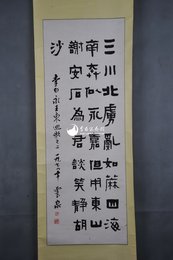 三川北虜亂如蔴四海
南奔似永嘉但用東山
謝安石為君談笑静胡
沙
李白永王東巡歌之二一九七